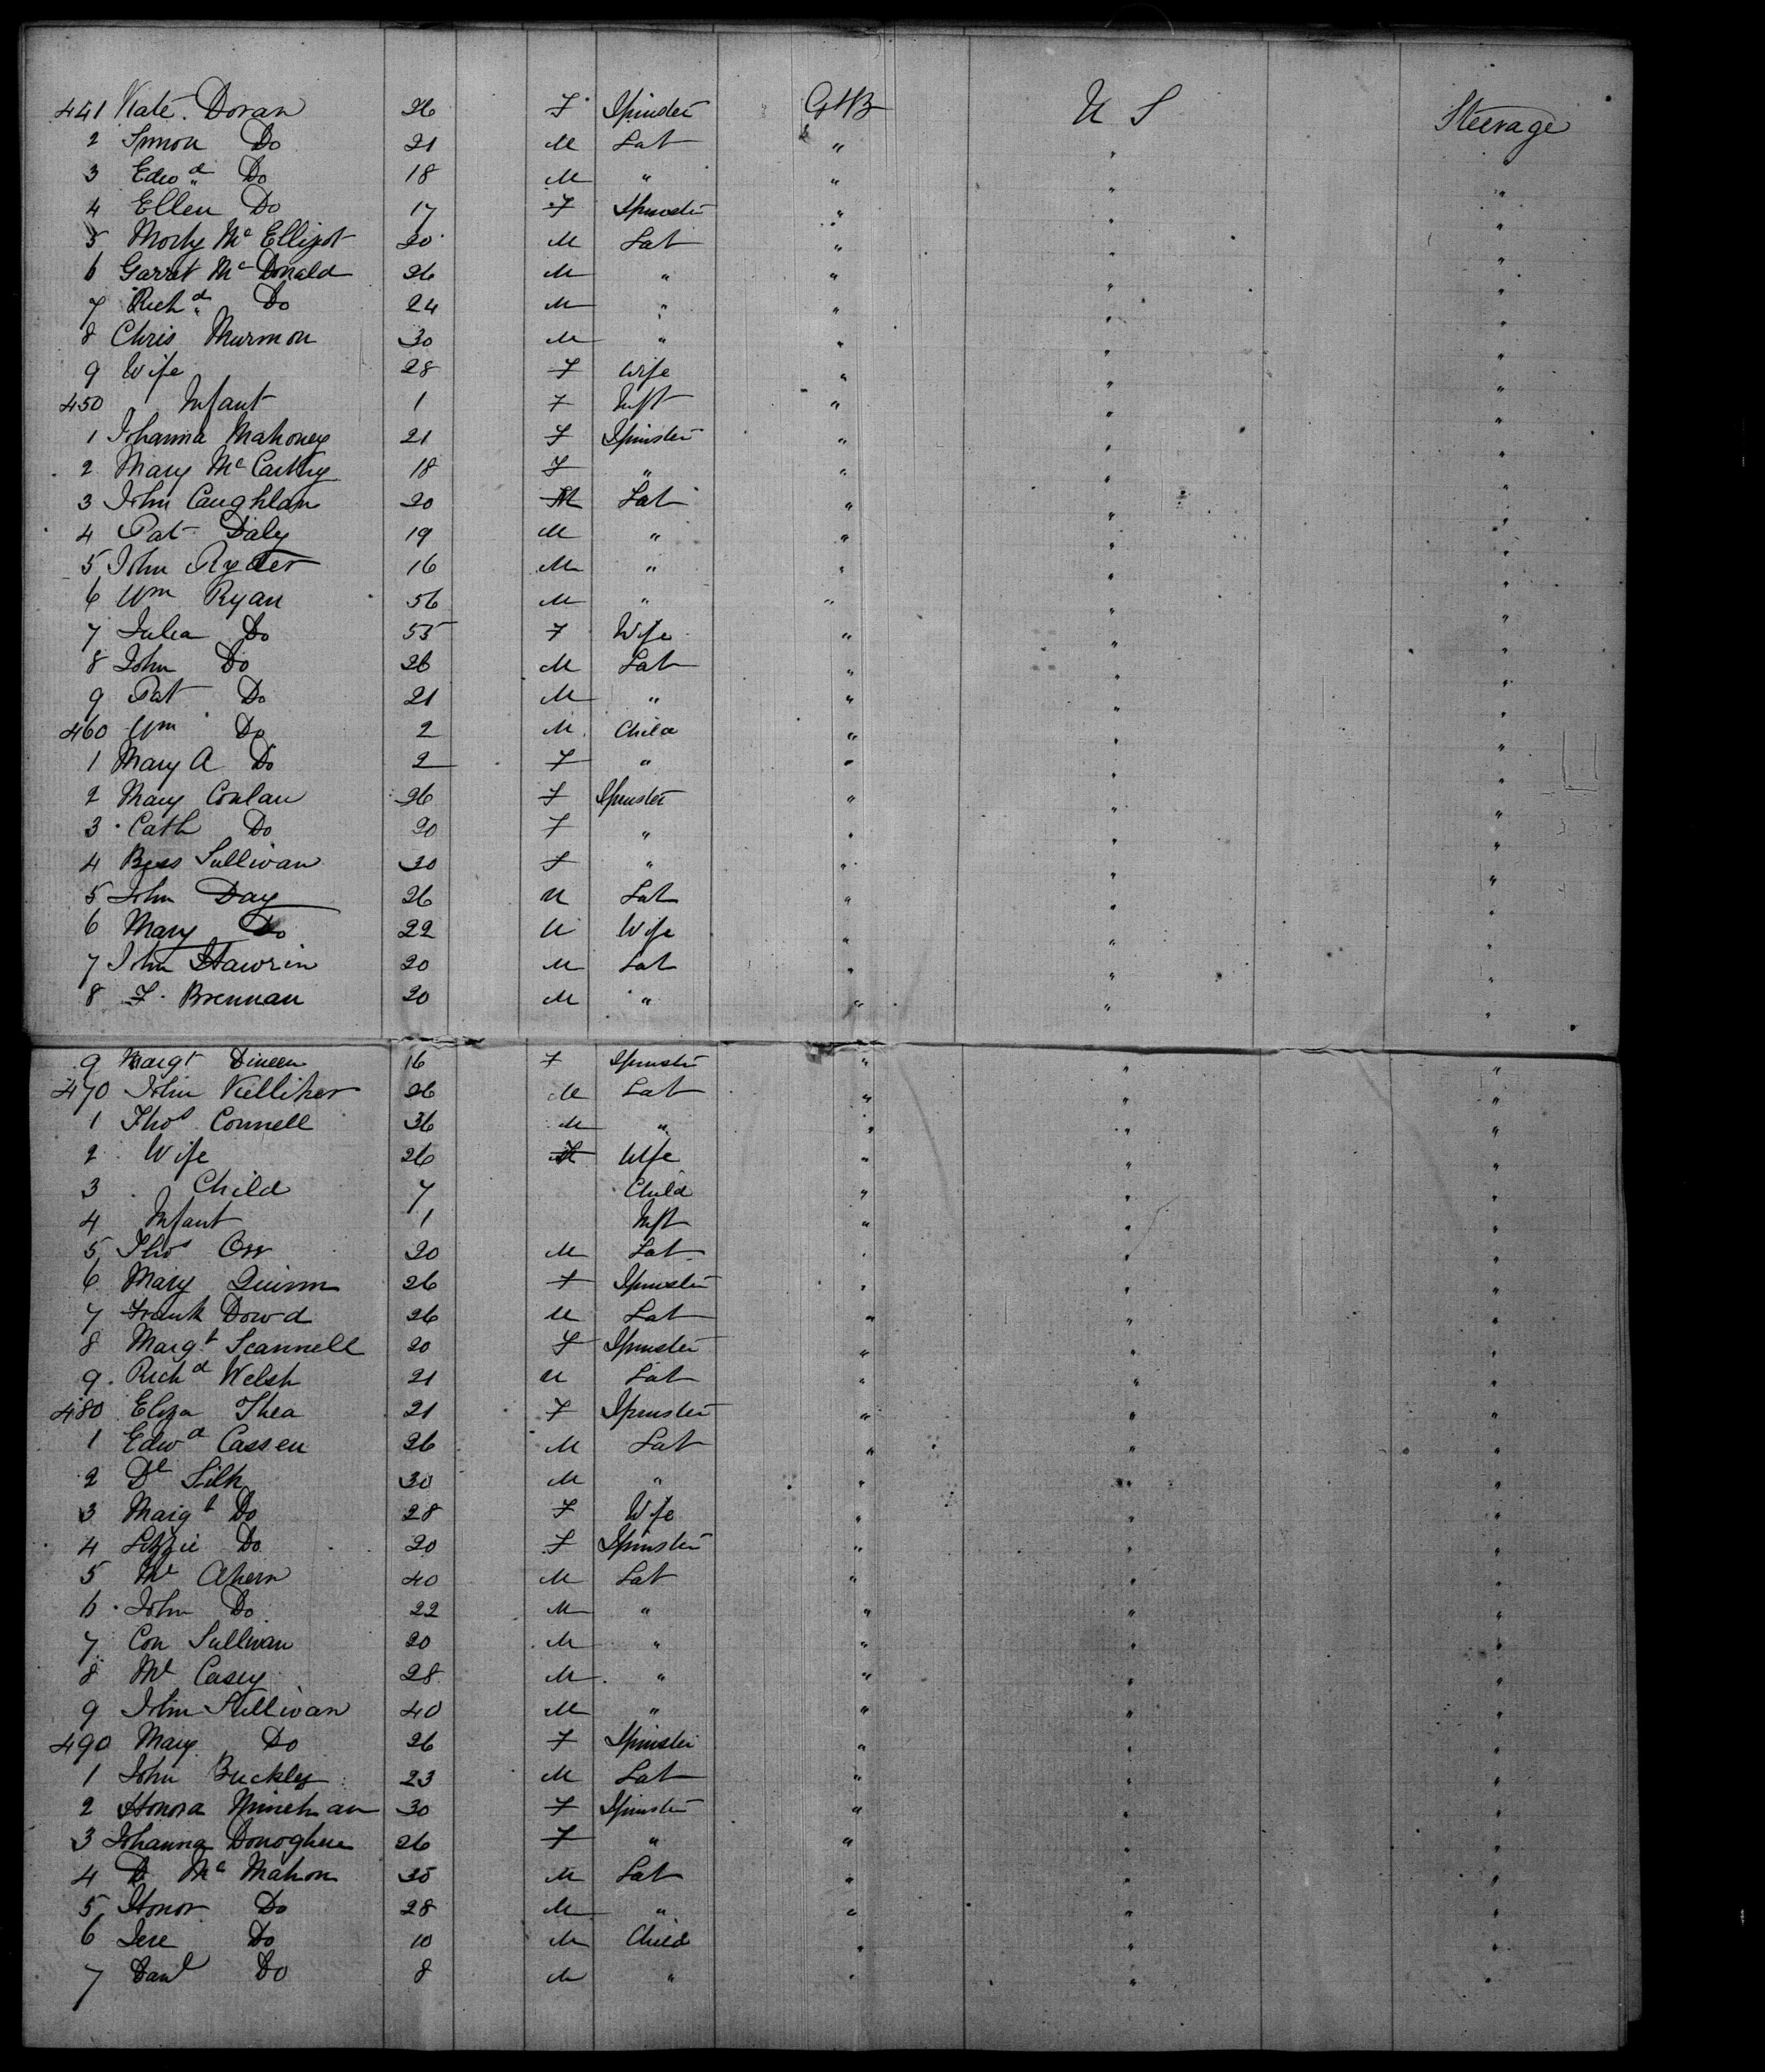 441 Kate Doran 26 F Spinster GtB U S Steerage
2 Simon Do 21 M Lab " " "
3 Edwd Do 18 M " " " "
4 Ellen Do 17 F Spinster " " "
5 Morty Mc Elligot 20 M Lab " " "
6 Garret Mc Donald 26 M " " " "
7 Richd Do 24 M " " " "
8 Chris Murmon 30 M " " " "
9 Wife 28 F Wife " " "
450 Infant 1 F Inft " " "
1 Johanna Mahoney 21 F Spinster " " "
2 Mary Mc Carthy 18 F " " " "
3 John Caughlan 20 M Lab " " "
4 Pat Daly 19 M " " " "
5 John Ryder 16 M " " " "
6 Wm Ryan 56 M " " " "
7 Julia Do 55 F Wife " " "
8 John Do 26 M Lab " " "
9 Pat Do 21 M " " " "
460 Wm Do 2 M Child " " "
1 Mary A Do 2 F " " " "
2 Mary Conlan 26 F Spinster " " "
3 Cath Do 20 F " " " "
4 Bess Sullivan 30 F " " " "
5 John Day 26 M Lab " " "
6 Mary Do 22 M Wife " " "
7 John Hawrin 20 M Lab " " "
8 F. Brennan 20 M " " " "
9 Margt Dineen 16 F Spinster " " "
470 John Kelliher 26 M Lab " " "
1 Thos Connell 36 M " " " "
2 Wife 26 F Wife " " "
3 Child 7 Child " " "
4 Infant 1 Inft " " "
5 Thos Orr 20 M Lab " " "
6 Mary Quinn 26 F Spinster " " "
7 Frank Dowd 26 M Lab " " "
8 Margt Scannell 20 F Spinster " " "
9 Richd Welsh 21 M Lab " " "
480 Eliza Shea 21 F Spinster " " "
1 Edwd Cassen 26 M Lab " " "
2 Dl Silk 30 M " " " "
3 Margt Do 28 F Wife " " "
4 Lizzie Do 20 F Spinster " " "
5 Ml Ahern 40 M Lab " " "
6 John Do 22 M " " " "
7 Con Sullivan 20 M " " " "
8 Ml Casey 28 M " " " "
9 John Sullivan 40 M " " " "
490 Mary Do 26 F Spinster " " "
1 John Buckley 23 M Lab " " "
2 Honora Minehan 30 F Spinster " " "
3 Johanna Donoghue 26 F " " " "
4 D Mc Mahon 35 M Lab " " "
5 Honor Do 28 M " " " "
6 Jere Do 10 M Child " " "
7 Danl Do 8 M " " " "